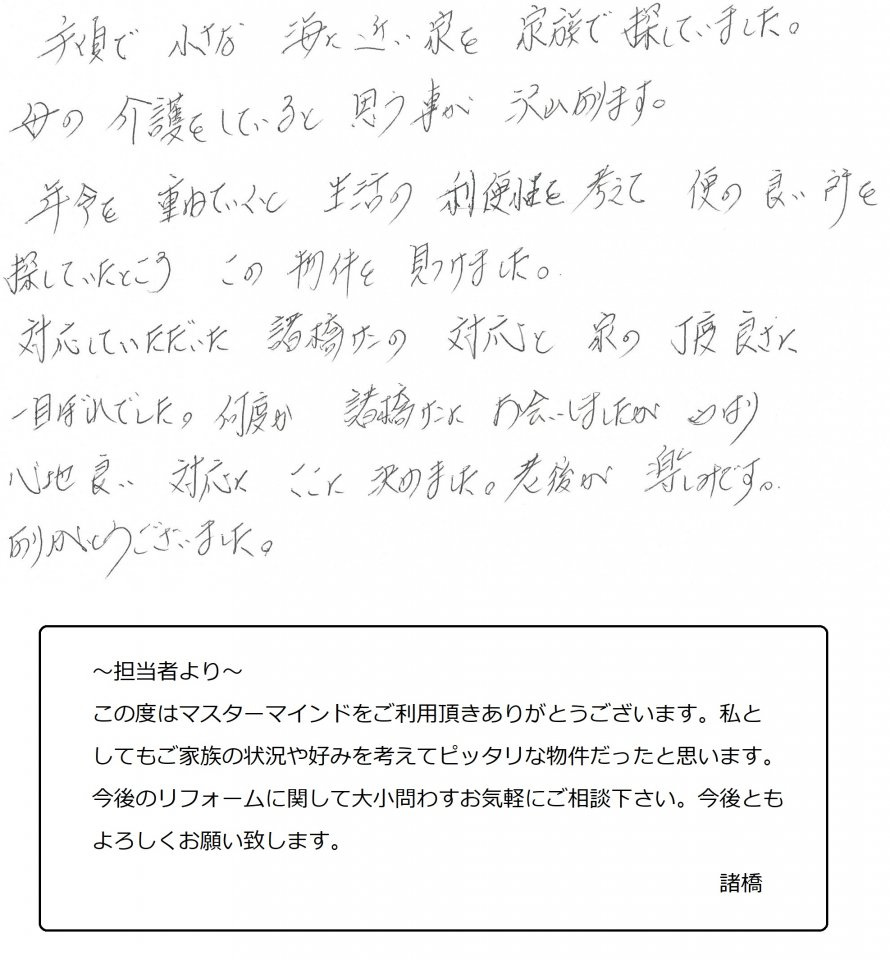 手頃で 小さな 海に近い家を 家族で探していました。
母の 介護をしていると 思う事が 沢山有ります。
年令を 重ねていくと 生活の 利便性を 考えて 便の良い所を
探していたところ この 物件を 見つけました。
対応していただいた 諸橋さんの 対応と 家の 丁度良さに
一目ぼれでした。何度か 諸橋さんに お会いしましたが やはり
心地良い 対応で ここに 決めました。老後が 楽しみです。
有りがとうございました。
～担当者より～
この度はマスターマインドをご利用頂きありがとうございます。私と
してもご家族の状況や好みを考えてピッタリな物件だったと思います。
今後のリフォームに関して大小問わすお気軽にご相談下さい。今後とも
よろしくお願い致します。
諸橋